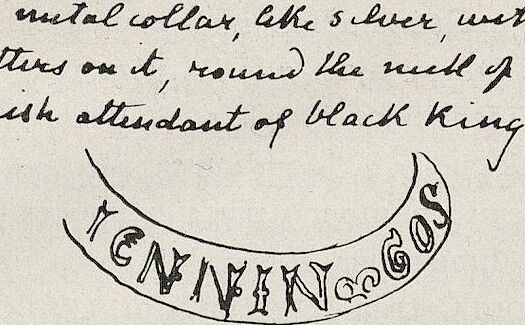 metal collar, like silver, with
tters on it, round the neck of
ish attendant of black King
IENNIN GOS